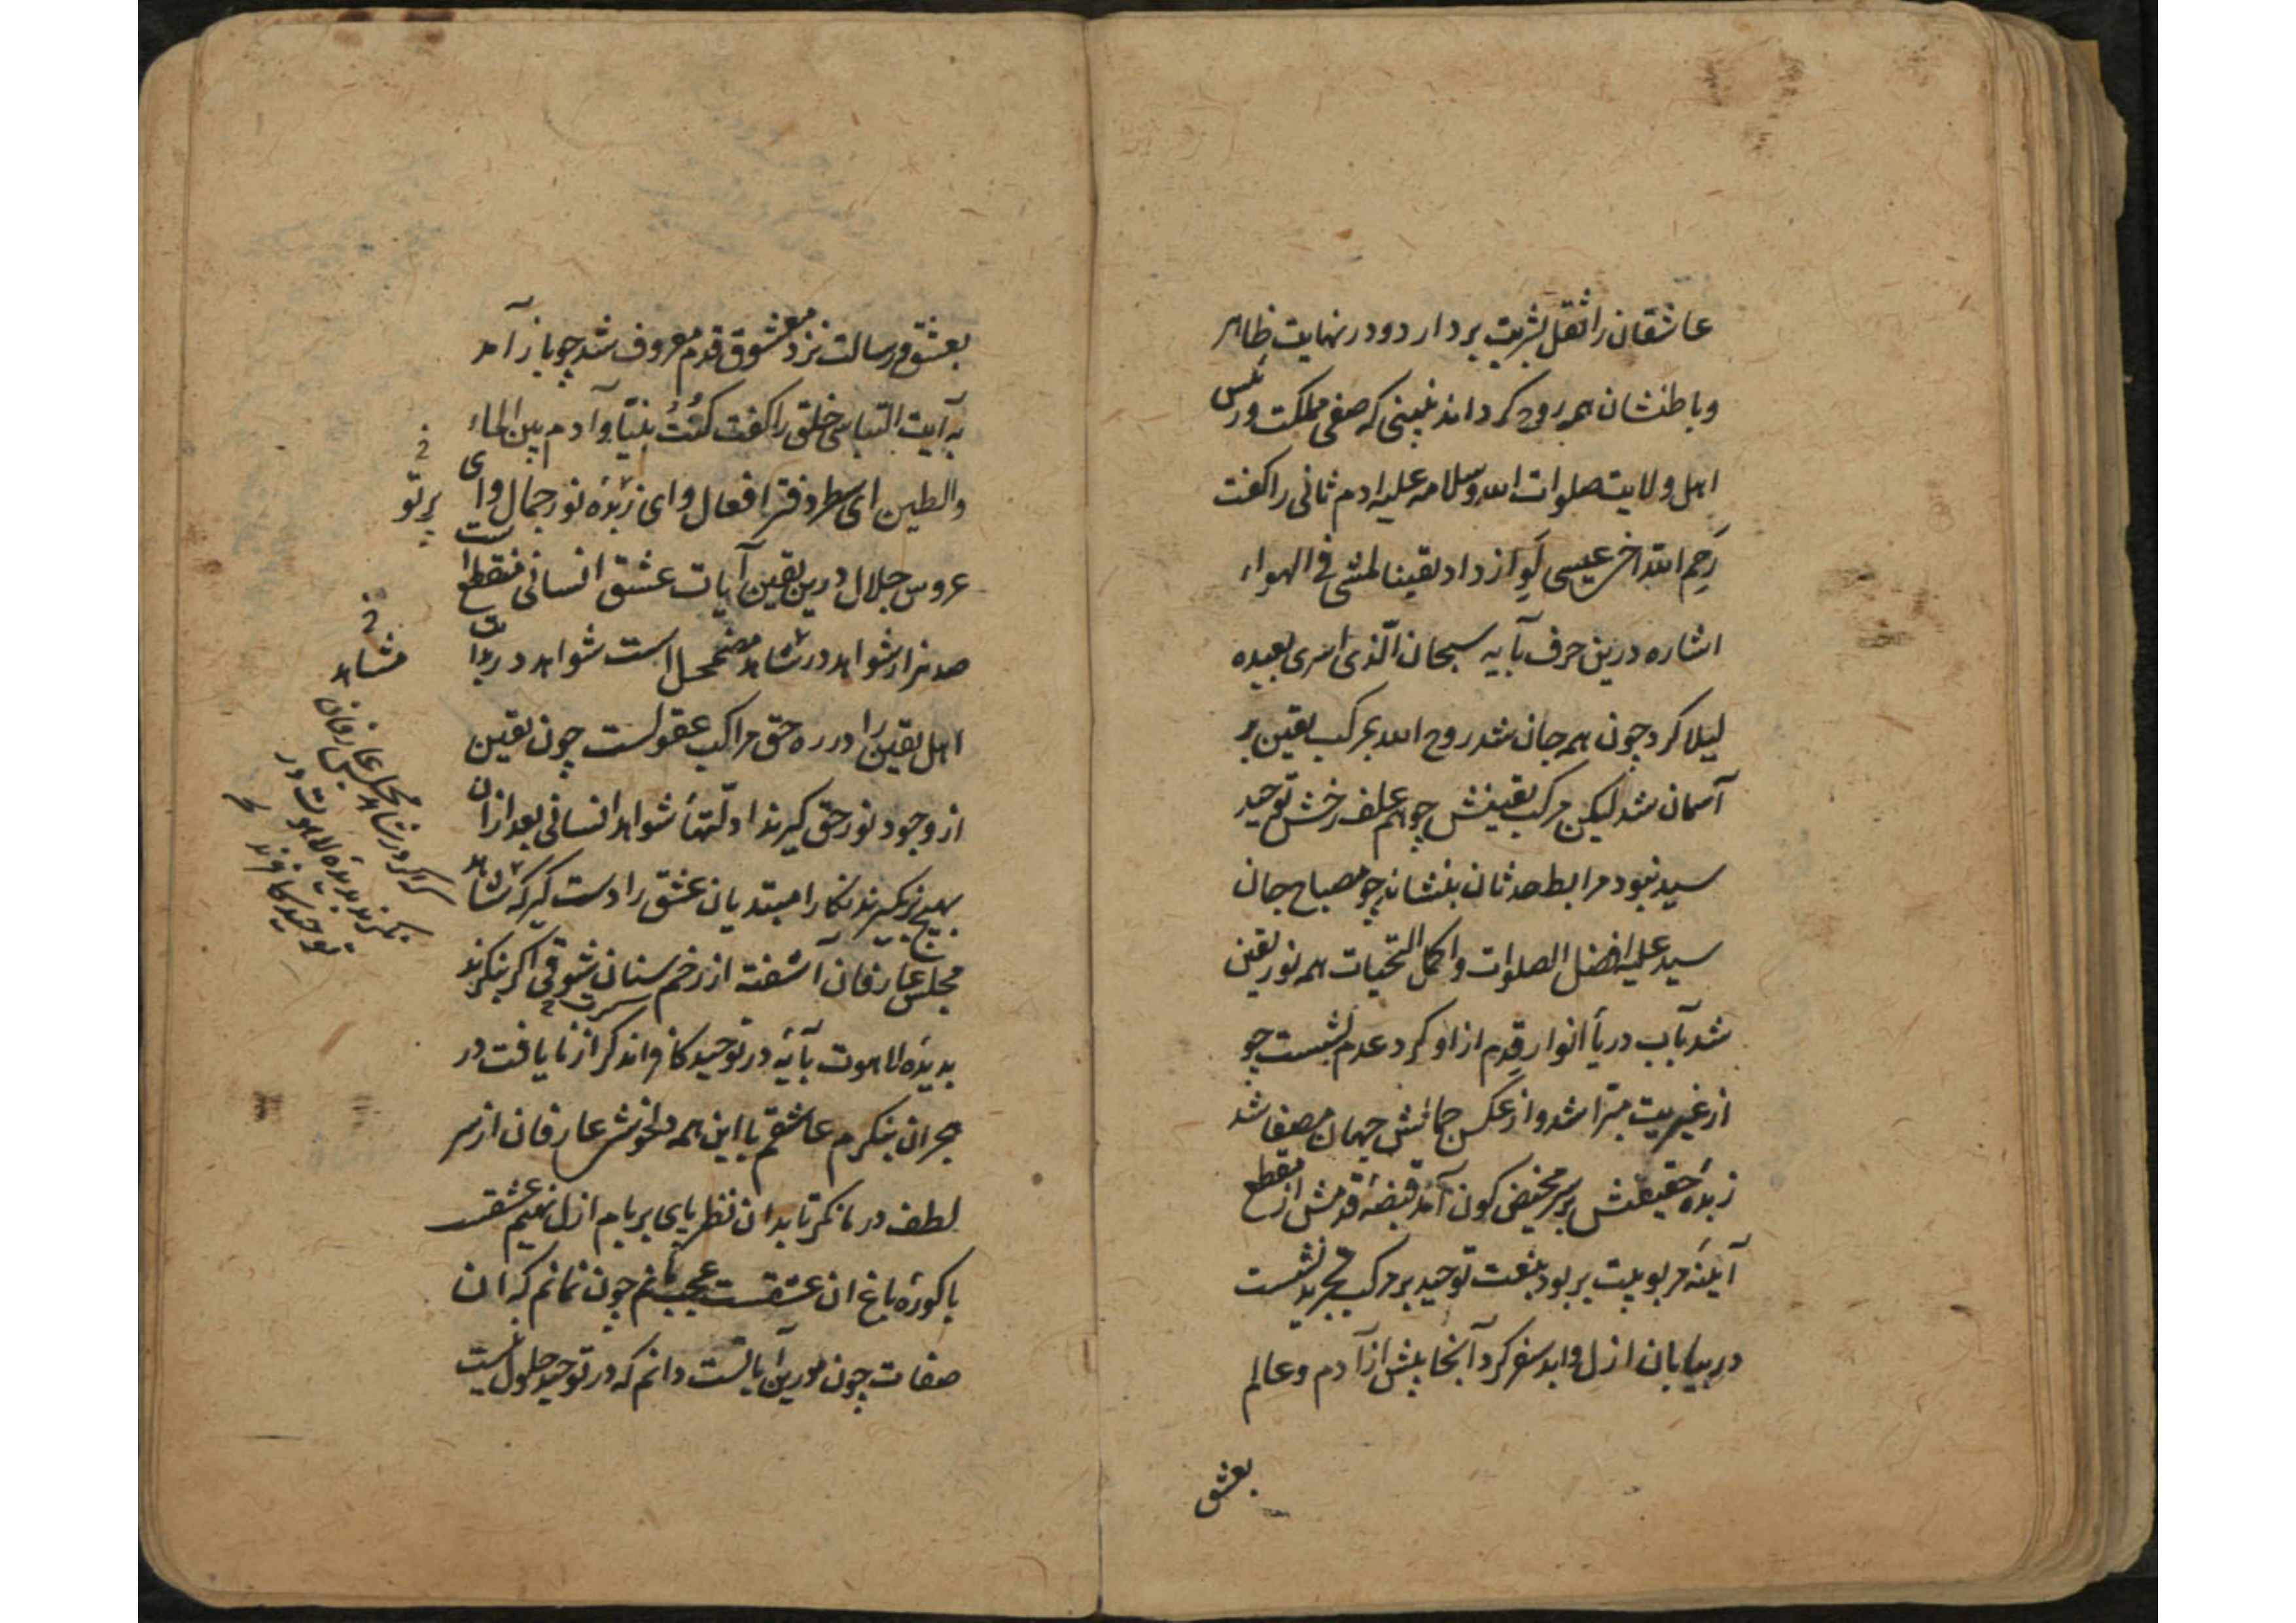 عاشقان را ثقل بشریت بردارد و در نهایت ظاهر
و باطنشان همه روح کرداند نبینی که صفی مملکت و رئیس
اهل ولایت صلوات الله وسلامه علیه ادم ثانی را کفت
رَحِم الله اخی عیسی لَوِ ازداد یقینا لمشی فی الهواء
اشاره درین حرف بآیه سبحان الّذی اسری بعبده
لیلا کرد چون همه جان شد روح الله بمرکب یقین بر
آسمان شد لیکن مرکب یقینش چو هم علف رخش توحید
سید نبود مرابط حدثان بنشاند چو مصباح جان
سید علیه افضل الصلوات واکمل التحیات همه نور یقین
شد بآب دریأ انوار قِدم از او کرد عدم بشست چو
از غیریت مبّرا شد و از عکس جمالش جهان مصفا شد
زبدهٔ حقیقتش بر سر مخیض کون آمد قبضهٔ قدمش از مقطع
آینهٔ مربوبیت بربود بنعت توحید بر مرکب تجرید نشست
در بیابان ازل و ابد سفر کرد آنجا پیش از آدم و عالم
بعشق
بعشق و رسالت نزد معشوق قدم معروف شد چو باز آمد
به آیت التباس خلق را کفت کُنْتُ نبیّاً وآدم بین الماء
والطین ای سطر دفتر افعال و ای زبدهٔ نور جمال و ای
عروس جلال درین یقین آیات عشق انسانی منقطع است
صد هزار شواهد در مشاهد مضمحل است شواهد در بدایت
اهل یقین را در ره حق مراکب عقولست چون یقین
از وجود نور حق کیرند ادلّتهأ شواهد انسانی بعد از ان
بهیچ برنکیرند نکارا مبتدیان عشق را دست کیر که مشاهد
مجلس عارفان آشفته از زخم سنان شوقی اکر بنکرند
بدیدهٔ لاهوت بآیهٔ در توحید کافراند کر از نایافت در
هجران بنکرم عاشقم با این همه دلخوش عارفان از سر
لطف در ما نکر تا بدان نظر پای بر بام ازل نهیم عشقت
باکورهٔ باغ ان عشقست عجب مانم چون نمانم که ان
صفات چون مورین آیاتست دانم که در توحید حلول نیست
پرتو
مشاهد